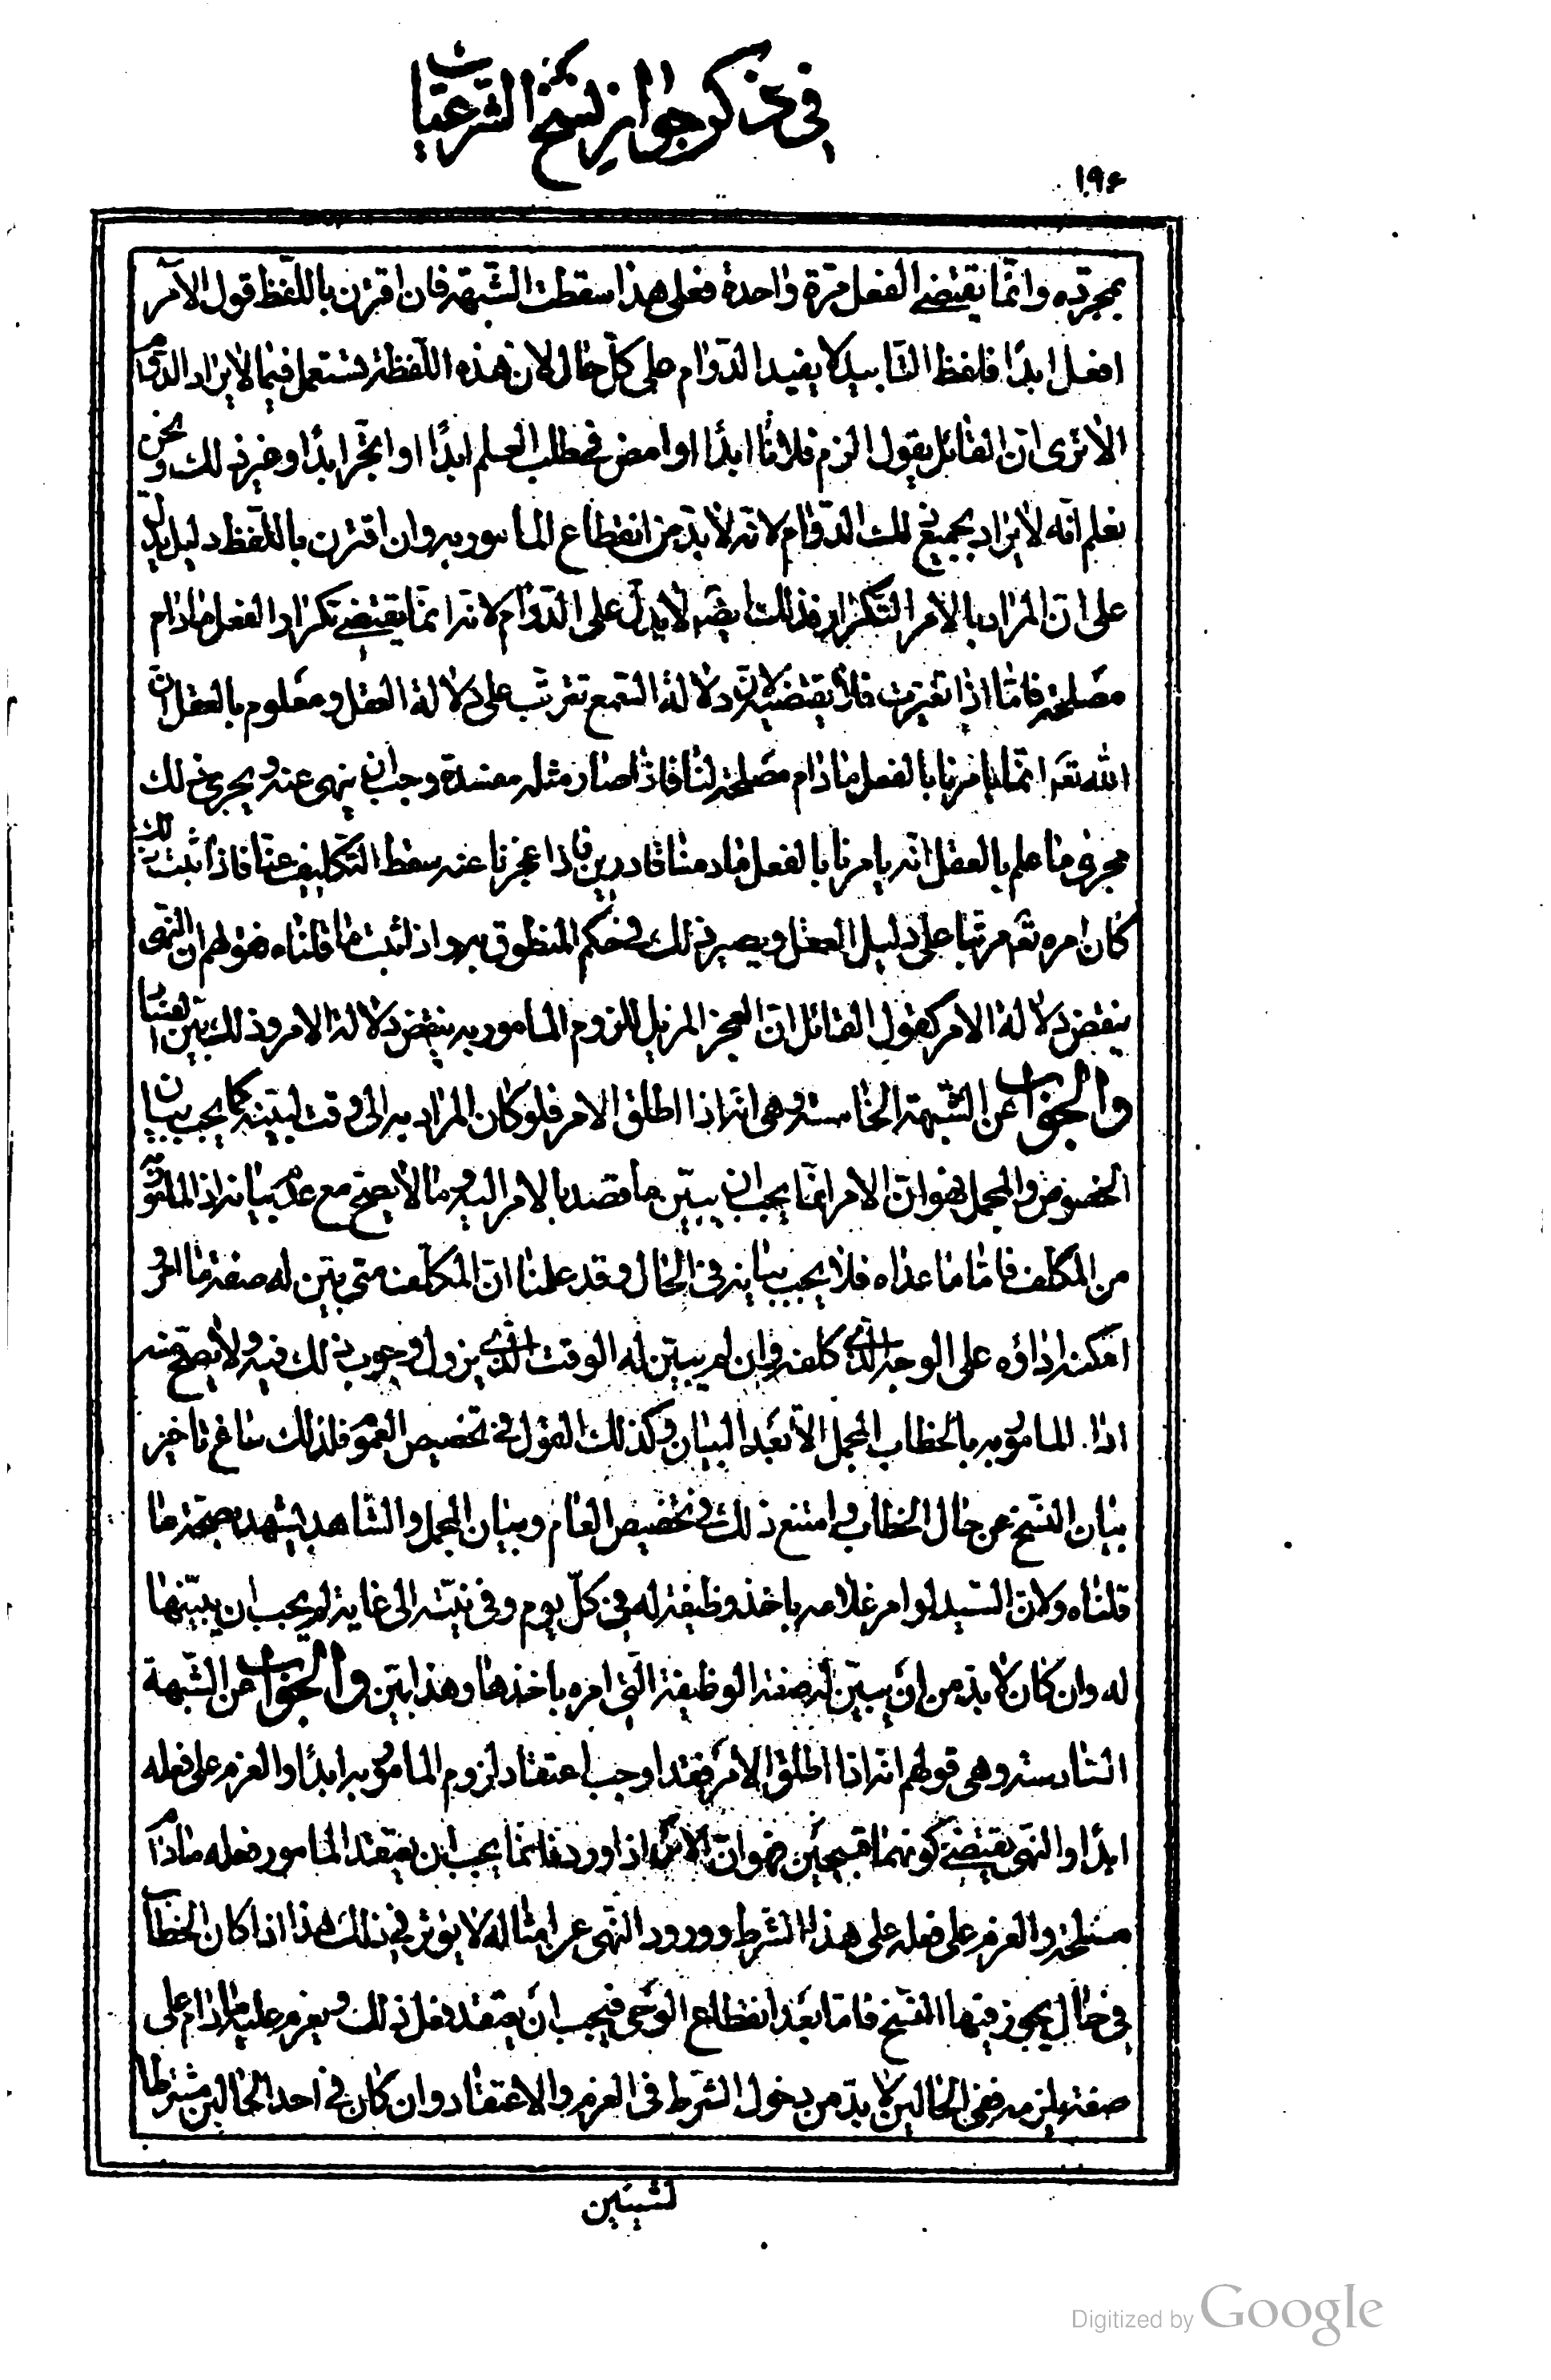 في ذكر جواز نسخ الشرعيات
۱۹۶
بمجرّده وانّما يقتضى الفعل مرّة واحدة فعلى هذا سقطت الشّبهة فان اقترن باللّفظ قول الآمر
افعل ابدًا فلفظ التّابيد لا يفيد الدّوام على كلّ حال لان هذه اللّفظة تستعمل فيما لا يراد الدّوام
الا ترى انّ القائل يقول الزم فلانًا ابدًا او امض في طلب العلم ابدًا او اتّجر ابدًا وغير ذلك ونحن
نعلم انّه لا يراد بجميع ذلك الدّوام لانّه لا بدّ من انقطاع المامور به وان اقترن باللّفظ دليل يدلّ
على انّ المراد بالامر التّكرار فذلك ايضًا لا يدلّ على الدّوام لانّه انّما يقتضى تكرار الفعل مادام
مصلحة فامّا اذا تغيّرت فلا يقتضيه لانّ دلالة السّمع تترتّب على دلالة العقل ومعلوم بالعقل انّ
الله تعـ انّما يامرنا بالفعل مادام مصلحة لنا فاذا صار مثله مفسدة وجب ان ينهى عنه ويجرى ذلك
مجرى ما علم بالعقل انّه يامرنا بالفعل مادمنا قادرين فاذا عجزنا عنه سقط التّكليف عنّا فاذا ثبت ذلك
كان امره تعـ مرتّبا على دليل العقل ويصير ذلك في حكم المنطوق به واذا ثبت ما قلناه فقولهم ان النّهى
ينقض دلالة الامر كقول القائل انّ العجز المزيل للزوم المامور به ينقض دلالة الامر وذلك بيّن الفساد
والجواب عن الشّبهة الخامسة وهى انّه اذا اطلق الامر فلو كان المراد به الى وقت لبيّنه كما يجب بيان
الخصوص والمجمل فهو انّ الامر انّما يجب ان يبيّن ما قصد بالامر اليه وما لا يصحّ مع عدم بيانه اداء المامور
من المكلّف فامّا ما عداه فلا يجب بيانه في الحال وقد علمنا انّ المكلّف متى بيّن له صفة ما امر
امكنه اداؤه على الوجه الّذى كلفه وان لم يبيّن له الوقت الّذى يزول وجوب ذلك فيه ولا يصحّ منه
اداء المامور به بالخطاب المجمل الّا بعد البيان وكذلك القول في تخصيص العموم فلذلك ساغ تاخير
بيان النّسخ عن حال الخطاب وامتنع ذلك في تخصيص العام وبيان المجمل والشّاهد يشهد بصحّة ما
قلناه ولانّ السّيد لو امر غلامه باخذ وظيفة له في كلّ يوم وفى نيّته الى غاية لم يجب ان يبيّنها
له وان كان لا بدّ من ان يبيّن له صفة الوظيفة الّتى امره باخذها وهذا بيّن والجواب عن الشّبهة
السّادسة وهى قولهم انّه اذا اطلق الامر فقد اوجب اعتقاد لزوم المامور به ابدًا والعزم على فعله
ابدًا والنّهى يقتضى كونهما قبيحين فهو انّ الامر اذا ورد فانّما يجب ان يعتقد المامور فعله مادام
مصلحة والعزم على فعله على هذا الشّرط وورود النّهى عن امثاله لا يؤثر في ذلك هذا اذا كان الخطاب
في حال يجوز فيها النّسخ فامّا بعد انقطاع الوحى فيجب ان يعتقد فعل ذلك ويعزم عليه مادام على
صفة يلزمه ففى الحالين لا بدّ من دخول الشّرط فى العزم والاعتقاد وان كان في احد الحالين مشترطا
لشيئين
Digitized by Google